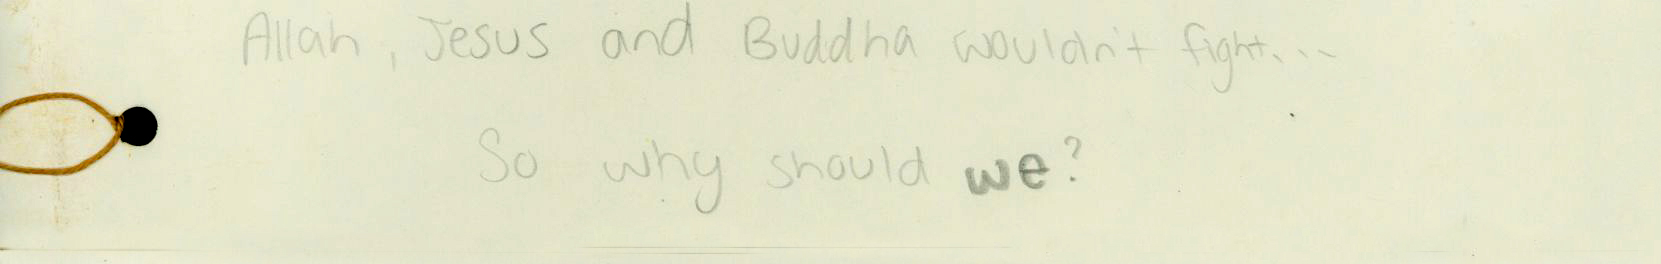 Allah, Jesus and Buddha wouldn't fight...
So why should we?